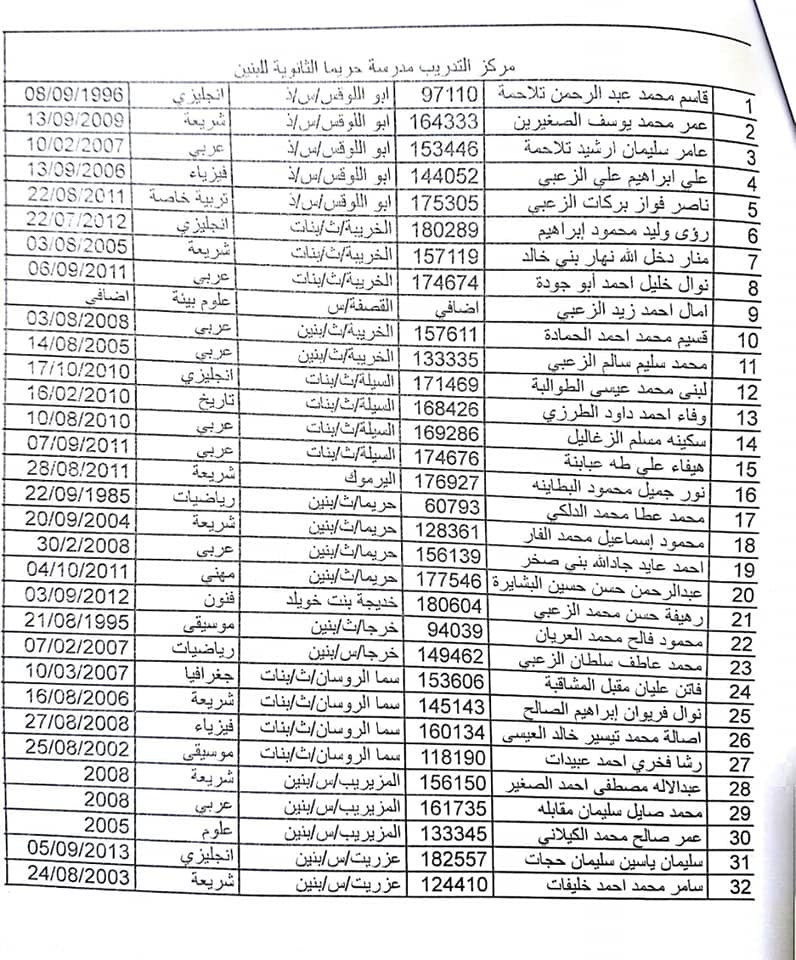 مركز التدريب مدرسة حريما الثانوية للبنين
1 قاسم محمد عبد الرحمن تلاحمة 97110 ابو اللوقس/س/ذ انجليزي 08/09/1996
2 عمر محمد يوسف الصغيرين 164333 ابو اللوقس/س/ذ شريعة 13/09/2009
3 عامر سليمان ارشيد تلاحمة 153446 ابو اللوقس/س/ذ عربي 10/02/2007
4 علي ابراهيم علي الزعبي 144052 ابو اللوقس/س/ذ فيزياء 13/09/2006
5 ناصر فواز بركات الزعبي 175305 ابو اللوقس/س/ذ تربية خاصة 22/08/2011
6 رؤى وليد محمود ابراهيم 180289 الخريبة/ث/بنات انجليزي 22/07/2012
7 منار دخل الله نهار بني خالد 157119 الخريبة/ث/بنات شريعة 03/08/2005
8 نوال خليل احمد أبو جودة 174674 الخريبة/ث/بنات عربي 06/09/2011
9 امال احمد زيد الزعبي اضافي القصفة/س علوم بيئة اضافي
10 قسيم محمد احمد الحمادة 157611 الخريبة/ث/بنين عربي 03/08/2008
11 محمد سليم سالم الزعبي 133335 الخريبة/ث/بنين عربي 14/08/2005
12 لبنى محمد عيسى الطوالبة 171469 السيلة/ث/بنات انجليزي 17/10/2010
13 وفاء احمد داود الطرزي 168426 السيلة/ث/بنات تاريخ 16/02/2010
14 سكينه مسلم الزغاليل 169286 السيلة/ث/بنات عربي 10/08/2010
15 هيفاء علي طه عبابنة 174676 السيلة/ث/بنات عربي 07/09/2011
16 نور جميل محمود البطاينه 176927 اليرموك شريعة 28/08/2011
17 محمد عطا محمد الدلكي 60793 حريما/ث/بنين رياضيات 22/09/1985
18 محمود إسماعيل محمد الفار 128361 حريما/ث/بنين شريعة 20/09/2004
19 احمد عايد جادالله بني صخر 156139 حريما/ث/بنين عربي 30/2/2008
20 عبدالرحمن حسن حسين البشايرة 177546 حريما/ث/بنين مهني 04/10/2011
21 رهيفة حسن محمد الزعبي 180604 خديجة بنت خويلد فنون 03/09/2012
22 محمود فالح محمد العريان 94039 خرجا/ث/بنين موسيقى 21/08/1995
23 محمد عاطف سلطان الزعبي 149462 خرجا/س/بنين رياضيات 07/02/2007
24 فاتن عليان مقبل المشاقبة 153606 سما الروسان/ث/بنات جغرافيا 10/03/2007
25 نوال فريوان إبراهيم الصالح 145143 سما الروسان/ث/بنات شريعة 16/08/2006
26 اصالة محمد تيسير خالد العيسى 160134 سما الروسان/ث/بنات فيزياء 27/08/2008
27 رشا فخري احمد عبيدات 118190 سما الروسان/ث/بنات موسيقى 25/08/2002
28 عبدالاله مصطفى احمد الصغير 156150 المزيريب/س/بنين شريعة 2008
29 محمد صايل سليمان مقابله 161735 المزيريب/س/بنين عربي 2008
30 عمر صالح محمد الكيلاني 133345 المزيريب/س/بنين علوم 2005
31 سليمان ياسين سليمان حجات 182557 عزريت/س/بنين انجليزي 05/09/2013
32 سامر محمد احمد خليفات 124410 عزريت/س/بنين شريعة 24/08/2003